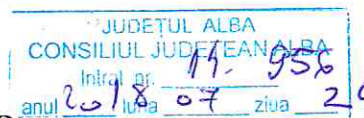 JUDEȚUL ALBA
CONSILIUL JUDEȚEAN ALBA
Intrat nr. 14. 956
anul 2018 luna 07 ziua 2